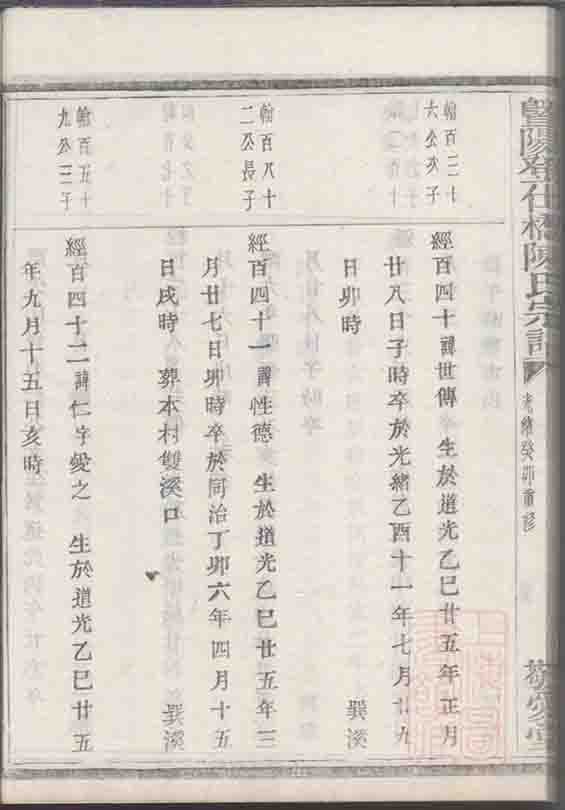 暨陽登仕橋陳氏宗譜
光緒癸卯重修
敬愛堂
翰百三十
六公次子
經百四十諱世傳 生於道光乙巳廿五年正月
廿八日子時卒於光緒乙酉十一年七月廿九
日卯時 巽溪
翰百八十
二公長子
經百四十一諱性德 生於道光乙巳廿五年三
月廿七日卯時卒於同治丁卯六年四月十五
日戌時 葬本村雙溪口 巽溪
翰百五十
九公三子
經百四十二諱仁字愛之 生於道光乙巳廿五
年九月十五日亥時